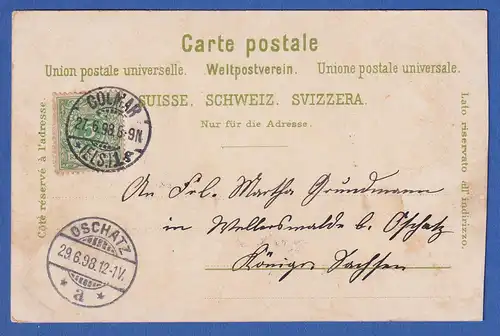 Carte postale
Union postale universelle. Weltpostverein. Unione postale universale.
SUISSE. SCHWEIZ. SVIZZERA.
Nur für die Adresse.
Côté réservé à l'adresse.
Lato riservato all'indirizzo.
COLMAR
27.6.98.6-9N
(ELS.) 1
An Frl. Martha Grundmann
in Wellerswalde b. Oschatz
Königr. Sachsen
OSCHATZ
29.6.98.12-1V.
* a *